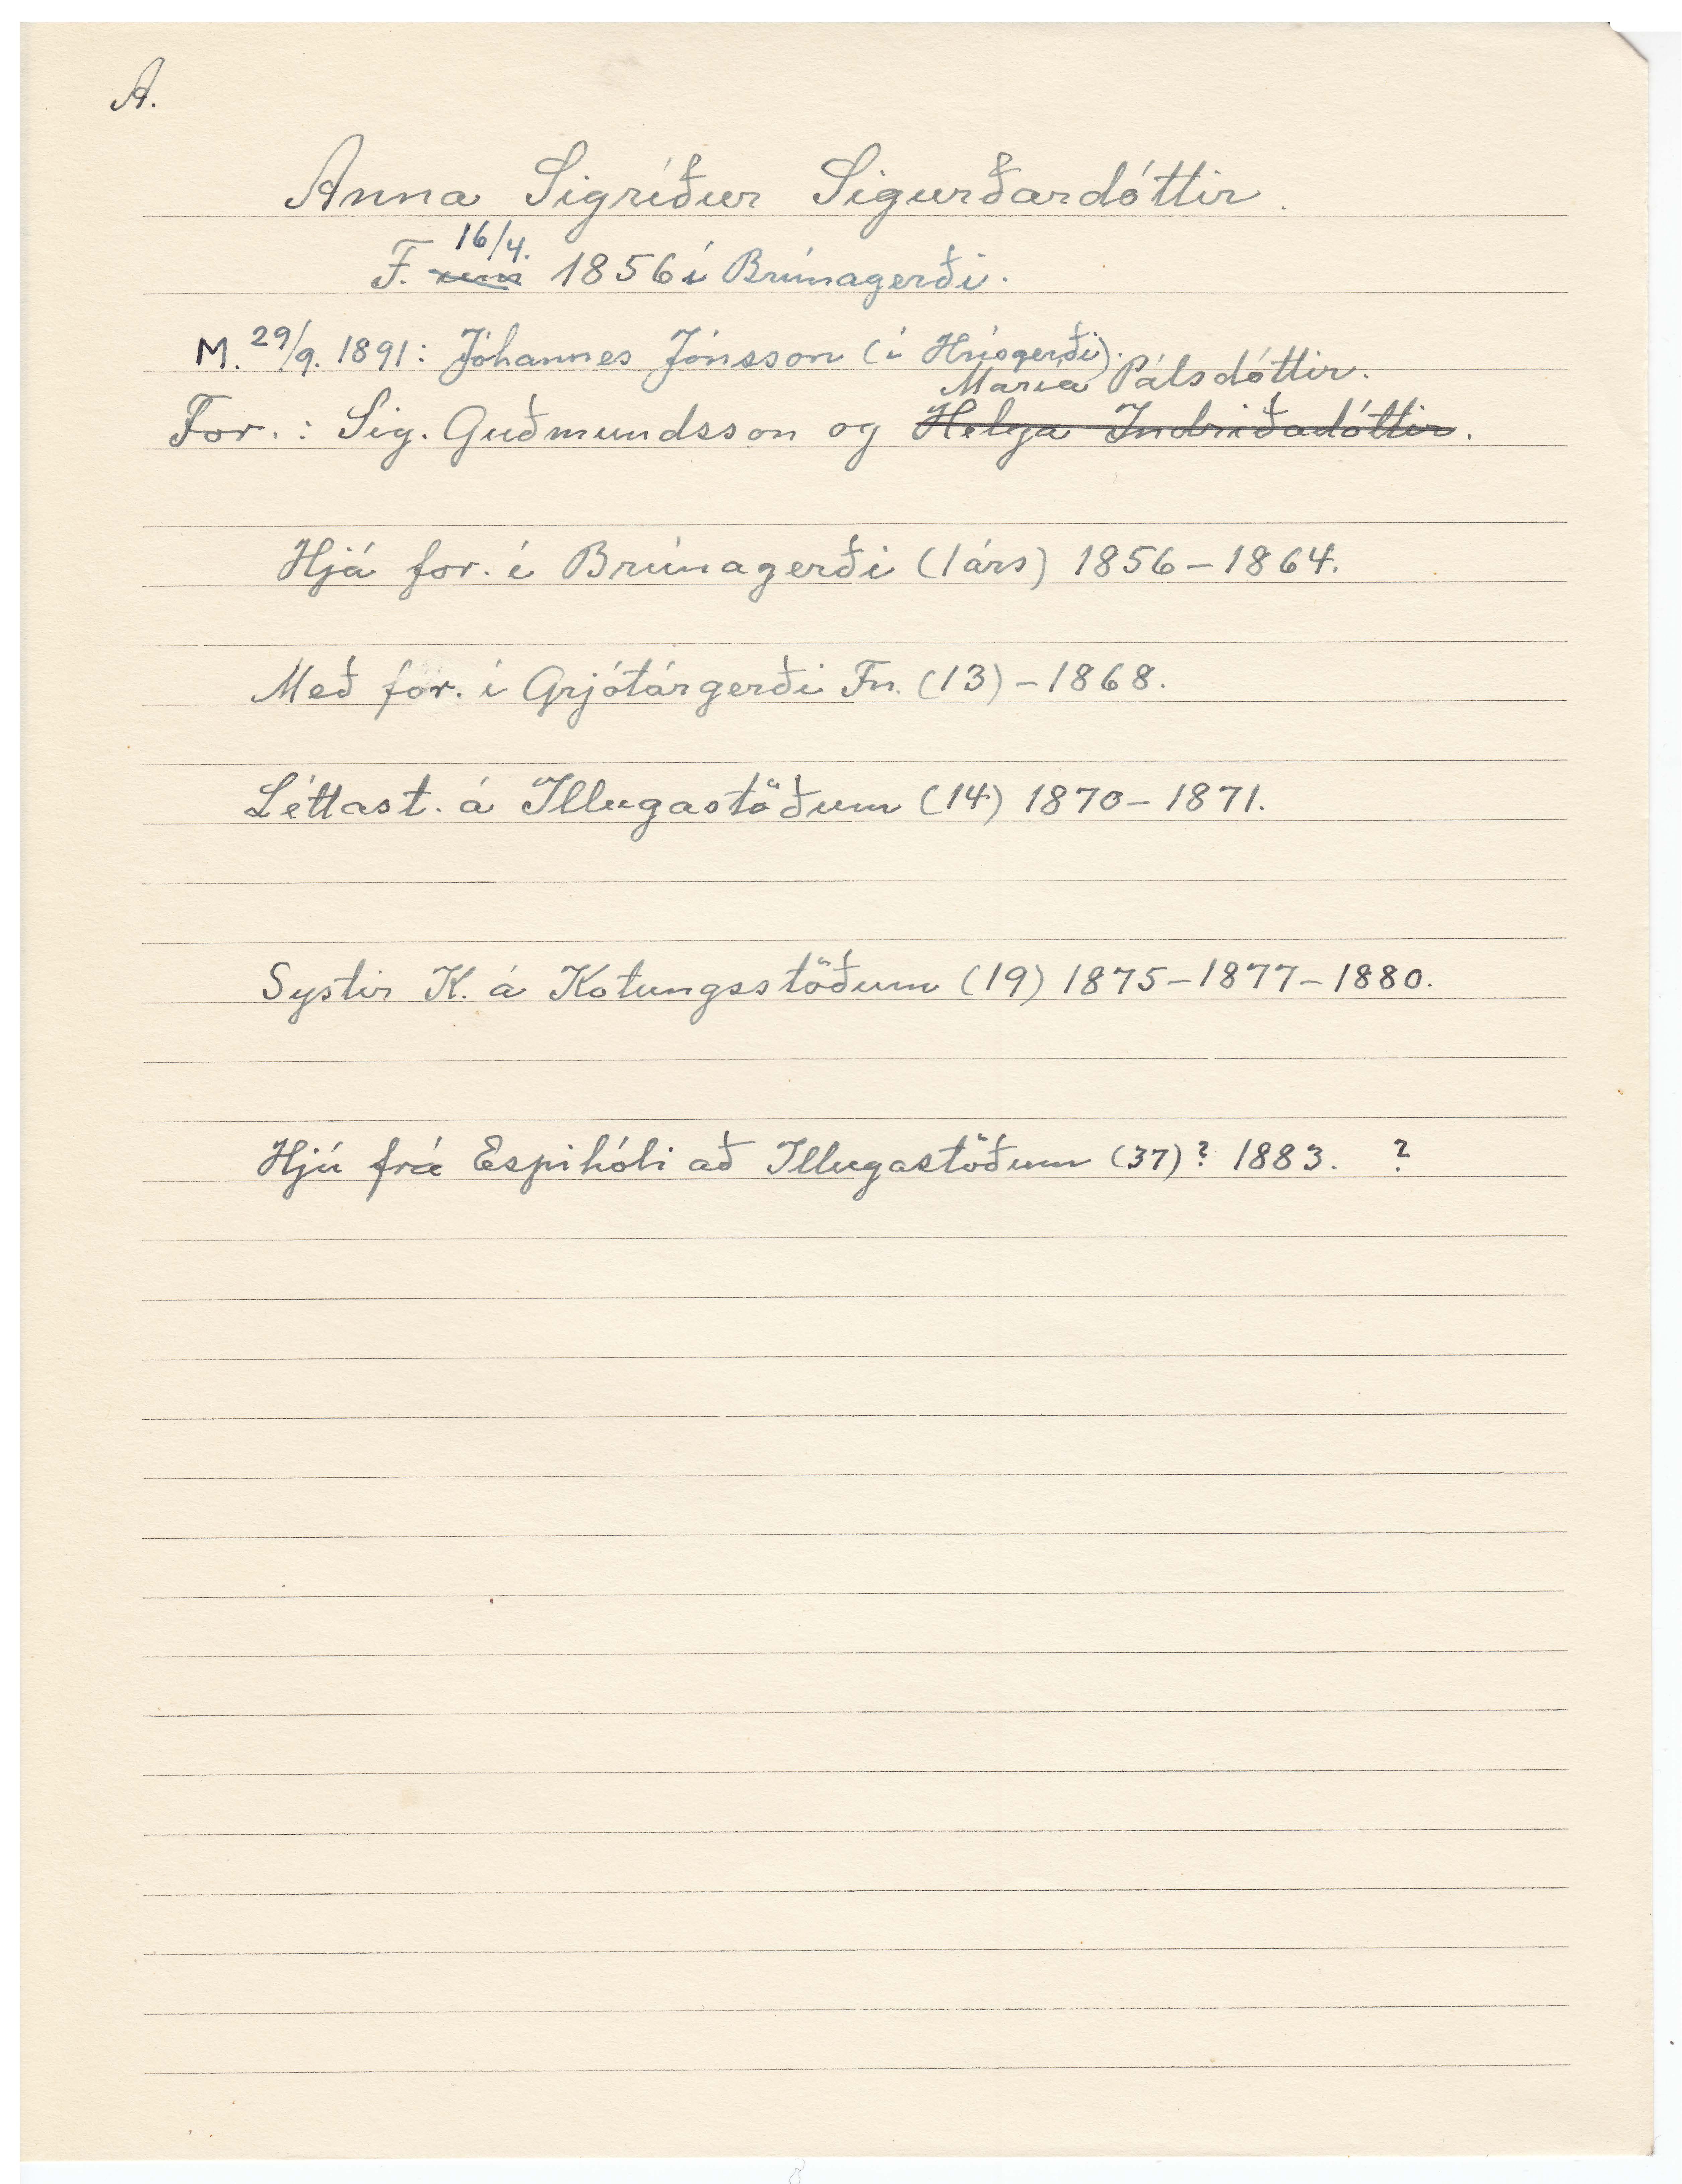 A.
Anna Sigríður Sigurðardóttir.
16/4.
F. um 1856 í Brúnagerði.
M. 29/9. 1891: Jóhannes Jónsson (í Hrísgerði).
María Pálsdóttir.
For.: Sig. Guðmundsson og Helga Indriðadóttir.
Hjá for. í Brúnagerði (1árs) 1856-1864.
Með for. í Grjótárgerði Fn. (13) - 1868.
Léttast. á Illugastöðum (14) 1870-1871.
Systir K. á Kotungsstöðum (19) 1875-1877-1880.
Hjú frá Espihóli að Illugastöðum (37)? 1883. ?